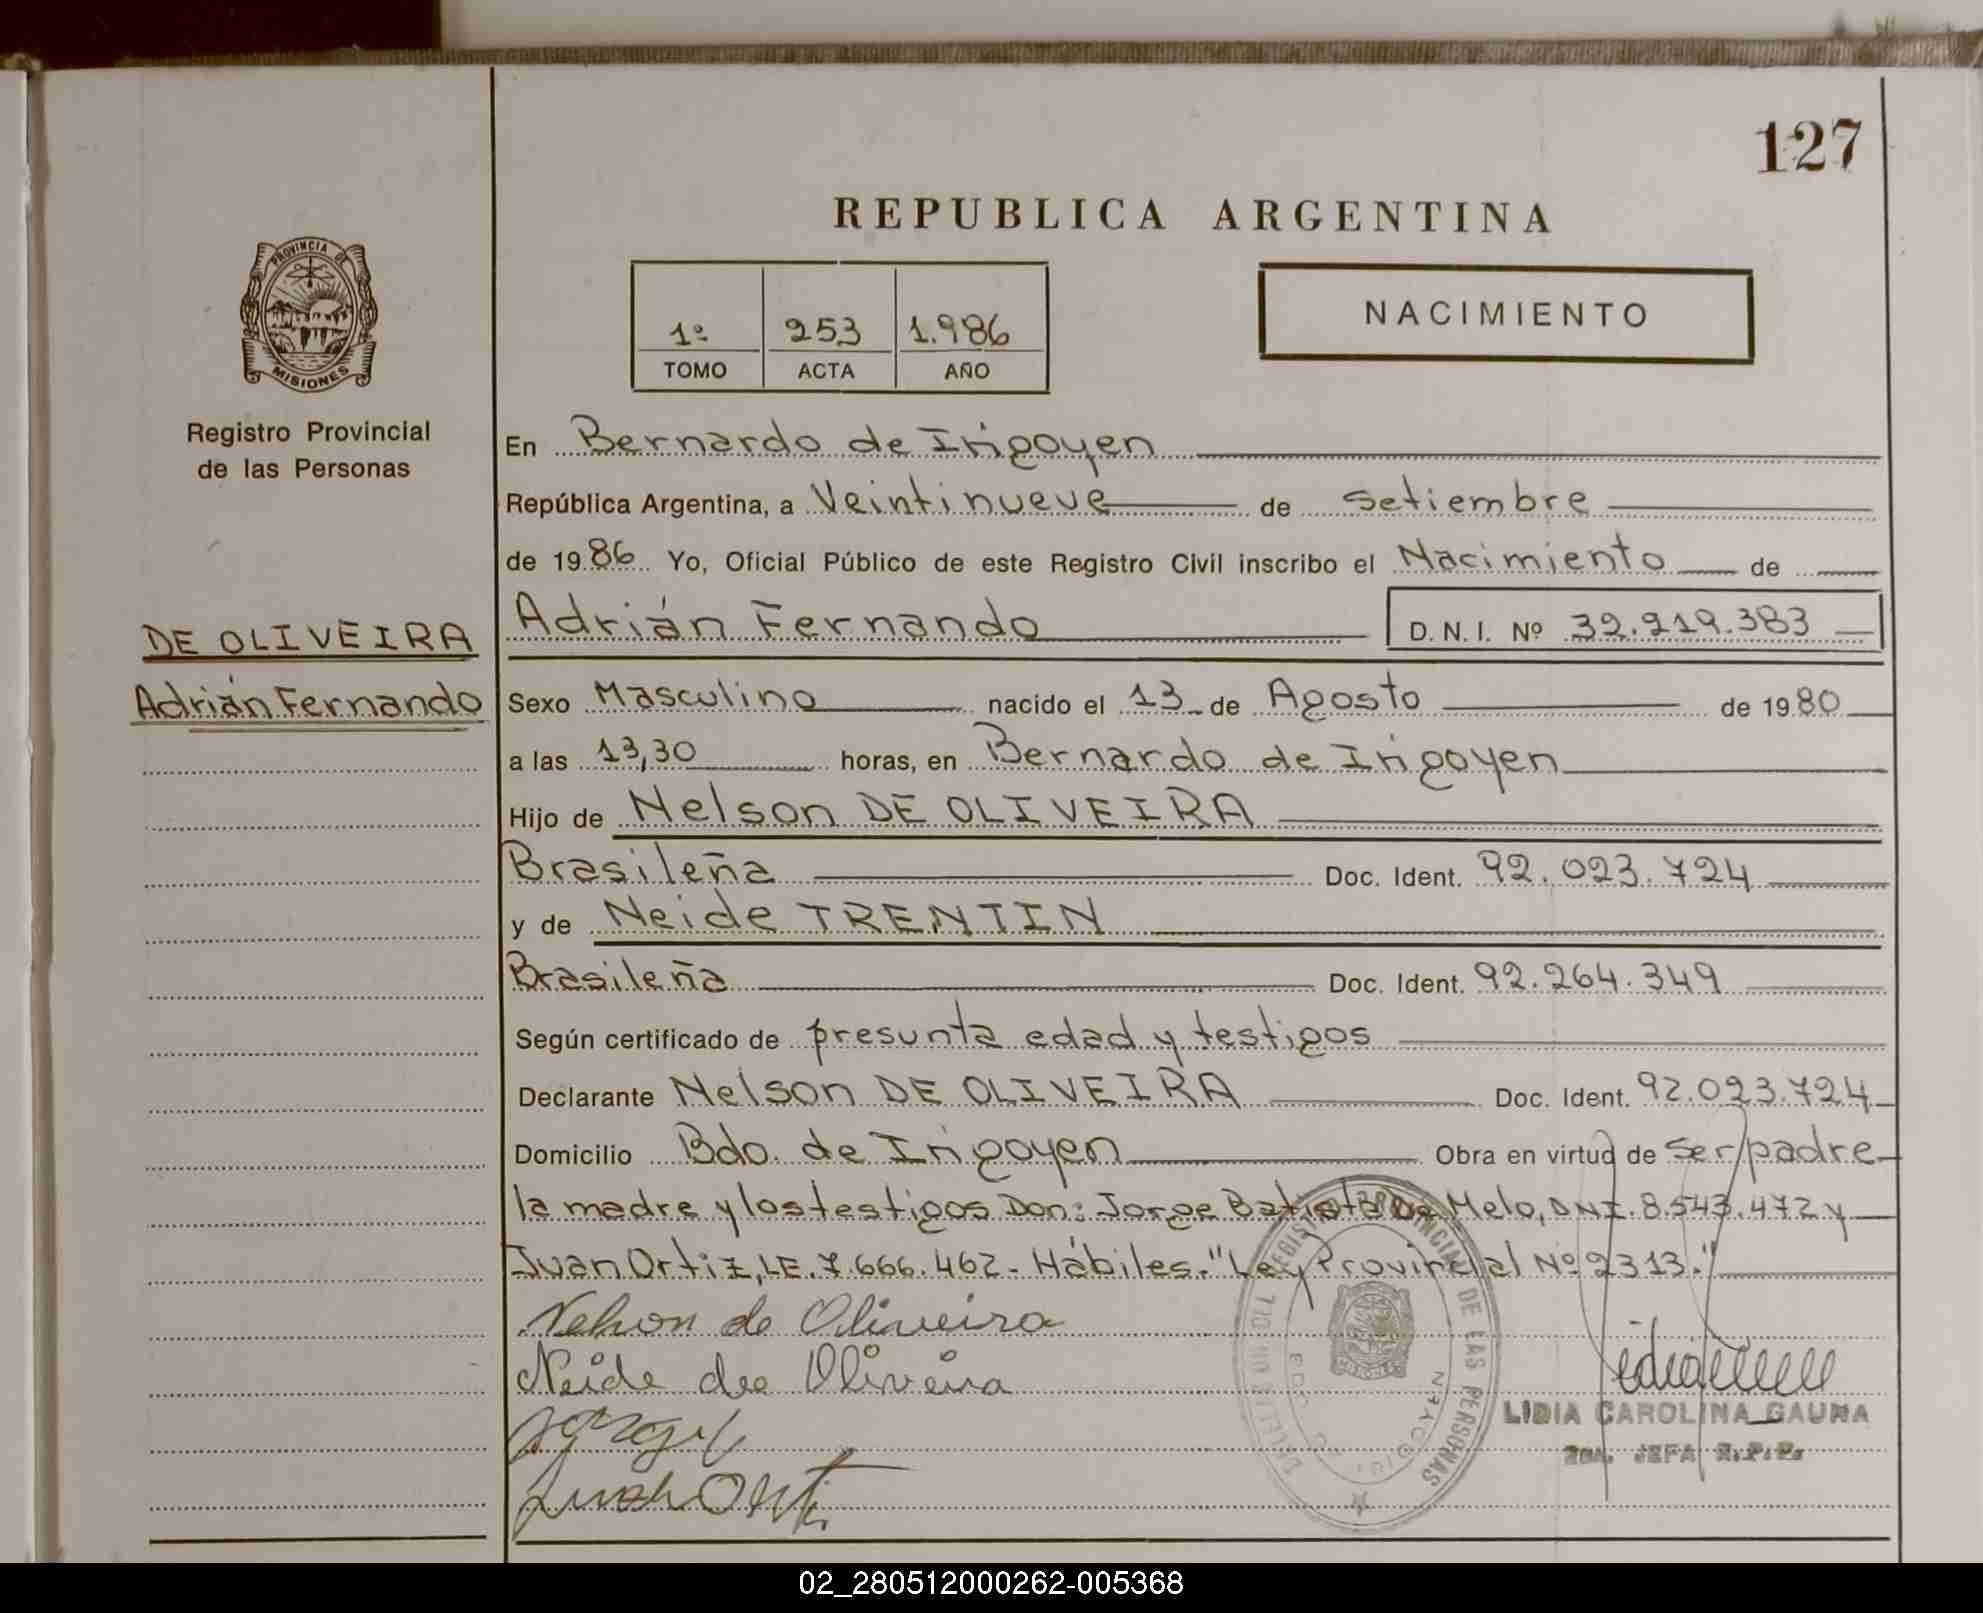 127
REPUBLICA ARGENTINA
PROVINCIA DE
MISIONES
1º 253 1.986
TOMO ACTA AÑO
NACIMIENTO
Registro Provincial
de las Personas
En Bernardo de Irigoyen
República Argentina, a Veintinueve de Setiembre
de 1986 Yo, Oficial Público de este Registro Civil inscribo el Nacimiento de
DE OLIVEIRA
Adrián Fernando
Adrián Fernando D. N. I. Nº 32.219.383
Sexo Masculino nacido el 13 de Agosto de 1980
a las 13,30 horas, en Bernardo de Irigoyen
Hijo de Nelson DE OLIVEIRA
Brasileña Doc. Ident. 92.023.724
y de Neide TRENTIN
Brasileña Doc. Ident. 92.264.349
Según certificado de presunta edad y testigos
Declarante Nelson DE OLIVEIRA Doc. Ident. 92.023.724
Domicilio Bdo. de Irigoyen Obra en virtud de ser padre
la madre y los testigos Don: Jorge Batista De Melo, DNI. 8.543.472 y
Juan Ortiz, LE. 7.666.462- Hábiles. "Ley Provincial Nº 2313."
Nelson de Oliveira
Neide de Oliveira
Juan Orti
DEL REGISTRO PROVINCIAL DE LAS PERSONAS
LIDIA CAROLINA GAUNA
2da. JEFA R.P.P.
02_280512000262-005368